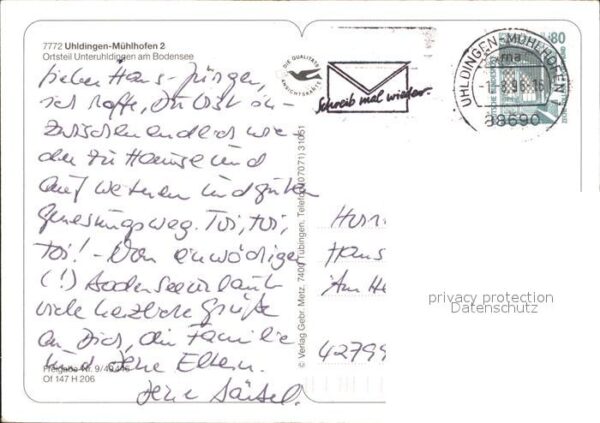 7772 Uhldingen-Mühlhofen 2
Ortsteil Unteruhldingen am Bodensee
Lieber Hans-Jürgen,
ich hoffe, Du bist in-
zwischen endlich wie-
der zu Hause und
auf weiterem und gutem
Genesungsweg. Toi, toi,
toi! - Von einwöchigen
(!) Bodenseeurlaub
viele herzliche Grüße
an Dich, die Familie
und Deine Eltern.
Freigabe Nr. 9/49446
Of 147 H 206
DIE QUALITÄTS
ANSICHTSKARTE
Schreib mal wieder
UHLDINGEN-MÜHLHOFEN 1
-1.8.96-16
88690
80
© Verlag Gebr. Metz, 7400 Tübingen, Telefon (07071) 31051
Herrn
Hans
Am He
42799
privacy protection
Datenschutz